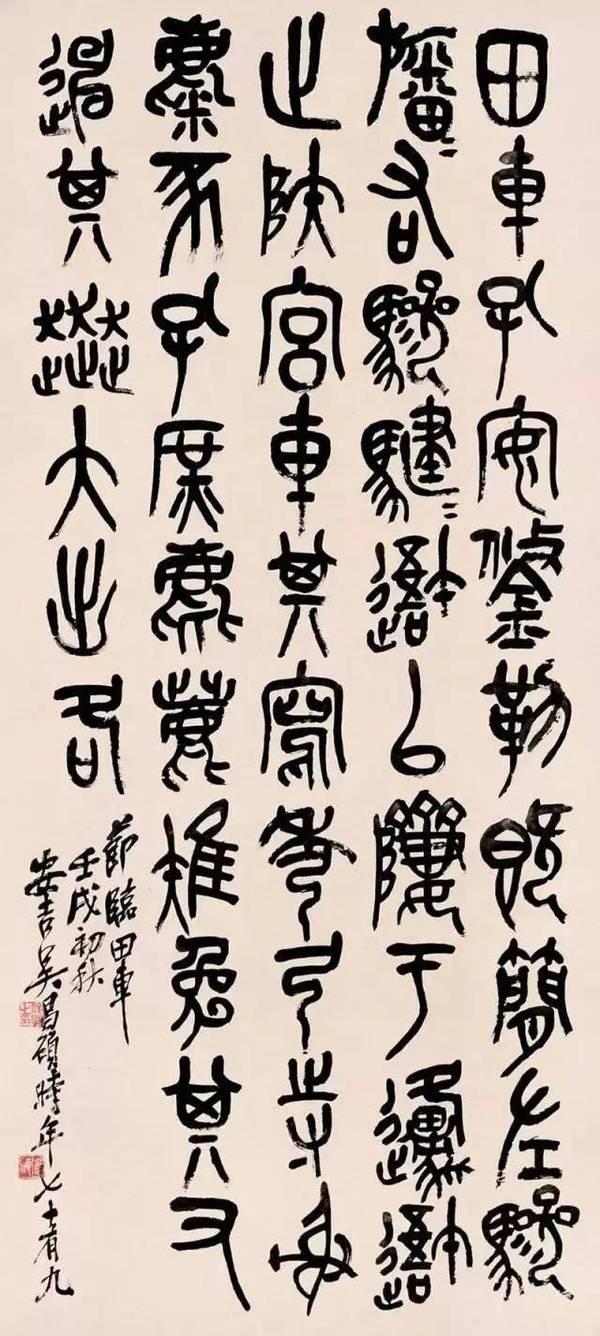 田車孔安鋚勒既簡左驂
旛=右驂騝=吾以隮于邍吾
止陝宮車其寫秀弓寺射
麋豕孔庶麀鹿雉兔其又
迧其奔大出各
節臨田車
壬戌初秋
安吉吳昌碩時年七十有九